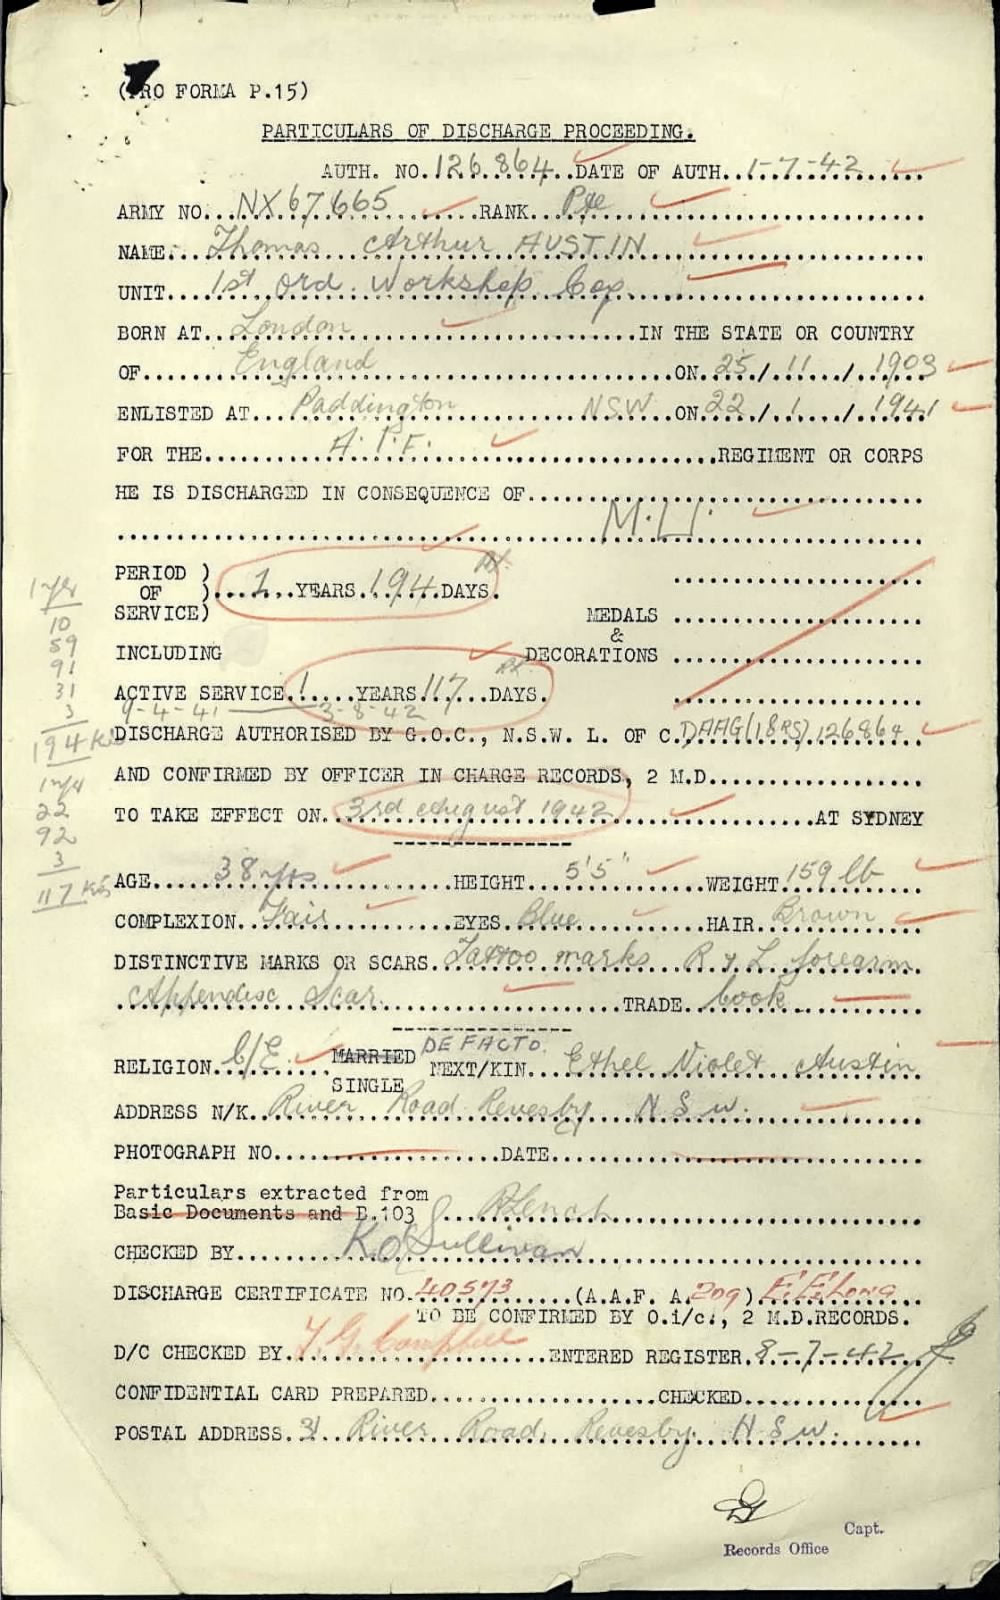 (PRO FORMA P.15)
PARTICULARS OF DISCHARGE PROCEEDING.
AUTH. NO. 126864 DATE OF AUTH. 1-7-42
ARMY NO. NX67665 RANK Pte
NAME Thomas Arthur AUSTIN
UNIT 1st Ord. Workshop Coy
BORN AT London IN THE STATE OR COUNTRY
OF England ON 25/11/1903
ENLISTED AT Paddington NSW ON 22/1/1941
FOR THE A.I.F. REGIMENT OR CORPS
HE IS DISCHARGED IN CONSEQUENCE OF
M.U.
PERIOD )
OF ) 1 YEARS 194 DAYS.
SERVICE)
MEDALS
&
INCLUDING DECORATIONS
ACTIVE SERVICE 1 YEARS 117 DAYS.
9-4-41 — 3-8-42
1 yr
10
59
91
31
3
194
DISCHARGE AUTHORISED BY G.O.C., N.S.W. L. OF C. DAAG(18RS) 126864
AND CONFIRMED BY OFFICER IN CHARGE RECORDS, 2 M.D.
TO TAKE EFFECT ON 3rd August 1942 AT SYDNEY
1 yr
22
92
3
117
AGE 38 yrs HEIGHT 5'5" WEIGHT 159 lb
COMPLEXION Fair EYES Blue HAIR Brown
DISTINCTIVE MARKS OR SCARS Tattoo marks R & L forearm
Appendisc Scar. TRADE Cook
RELIGION C/E MARRIED DE FACTO. NEXT/KIN Ethel Violet Austin
SINGLE
ADDRESS N/K River Road Revesby N S W.
PHOTOGRAPH NO. DATE
Particulars extracted from
Basic Documents and B.103
CHECKED BY K O'Sullivan
DISCHARGE CERTIFICATE NO. 40573 (A.A.F. A. 209) E.E. Long
TO BE CONFIRMED BY O.i/c., 2 M.D.RECORDS.
D/C CHECKED BY T. G. Campbell ENTERED REGISTER 8-7-42
CONFIDENTIAL CARD PREPARED CHECKED
POSTAL ADDRESS 31 River Road, Revesby. N S W.
Capt.
Records Office